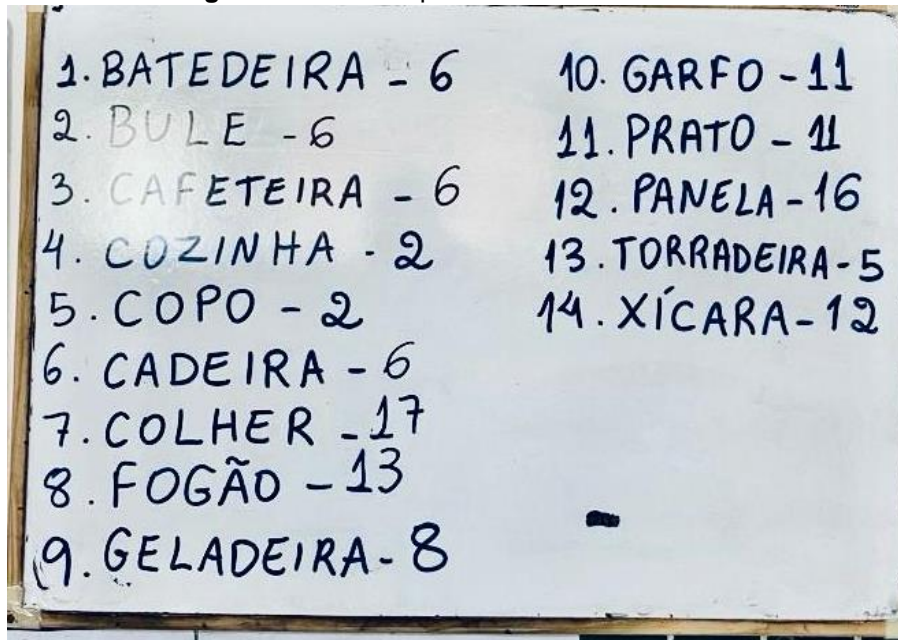 1. BATEDEIRA - 6
2. BULE - 6
3. CAFETEIRA - 6
4. COZINHA - 2
5. COPO - 2
6. CADEIRA - 6
7. COLHER - 17
8. FOGÃO - 13
9. GELADEIRA - 8
10. GARFO - 11
11. PRATO - 11
12. PANELA - 16
13. TORRADEIRA - 5
14. XÍCARA - 12